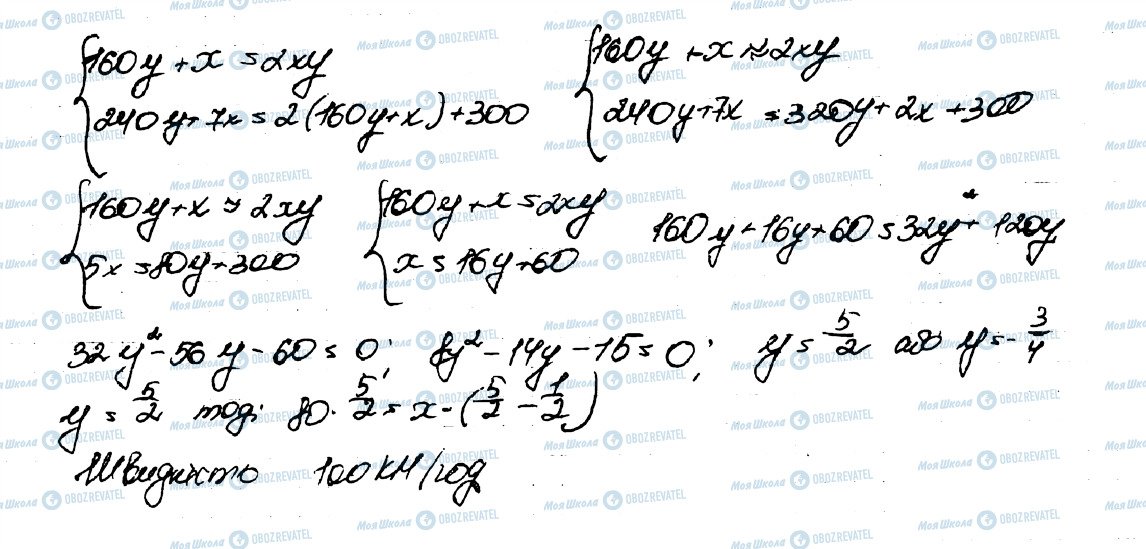 {160y + x = 2xy
240y + 7x = 2(160y + x) + 300
{160y + x = 2xy
240y + 7x = 320y + 2x + 300
{160y + x = 2xy
5x = 80y + 300
{160y + x = 2xy
x = 16y + 60
160y + 16y + 60 = 32y² + 120y
32y² - 56y - 60 = 0; 8y² - 14y - 15 = 0; y = 5/2 або y = -3/4
y = 5/2 тоді: 80 · 5/2 = x · (5/2 - 1/2)
Швидкість 100 км/год
Моя Школа OBOZREVATEL